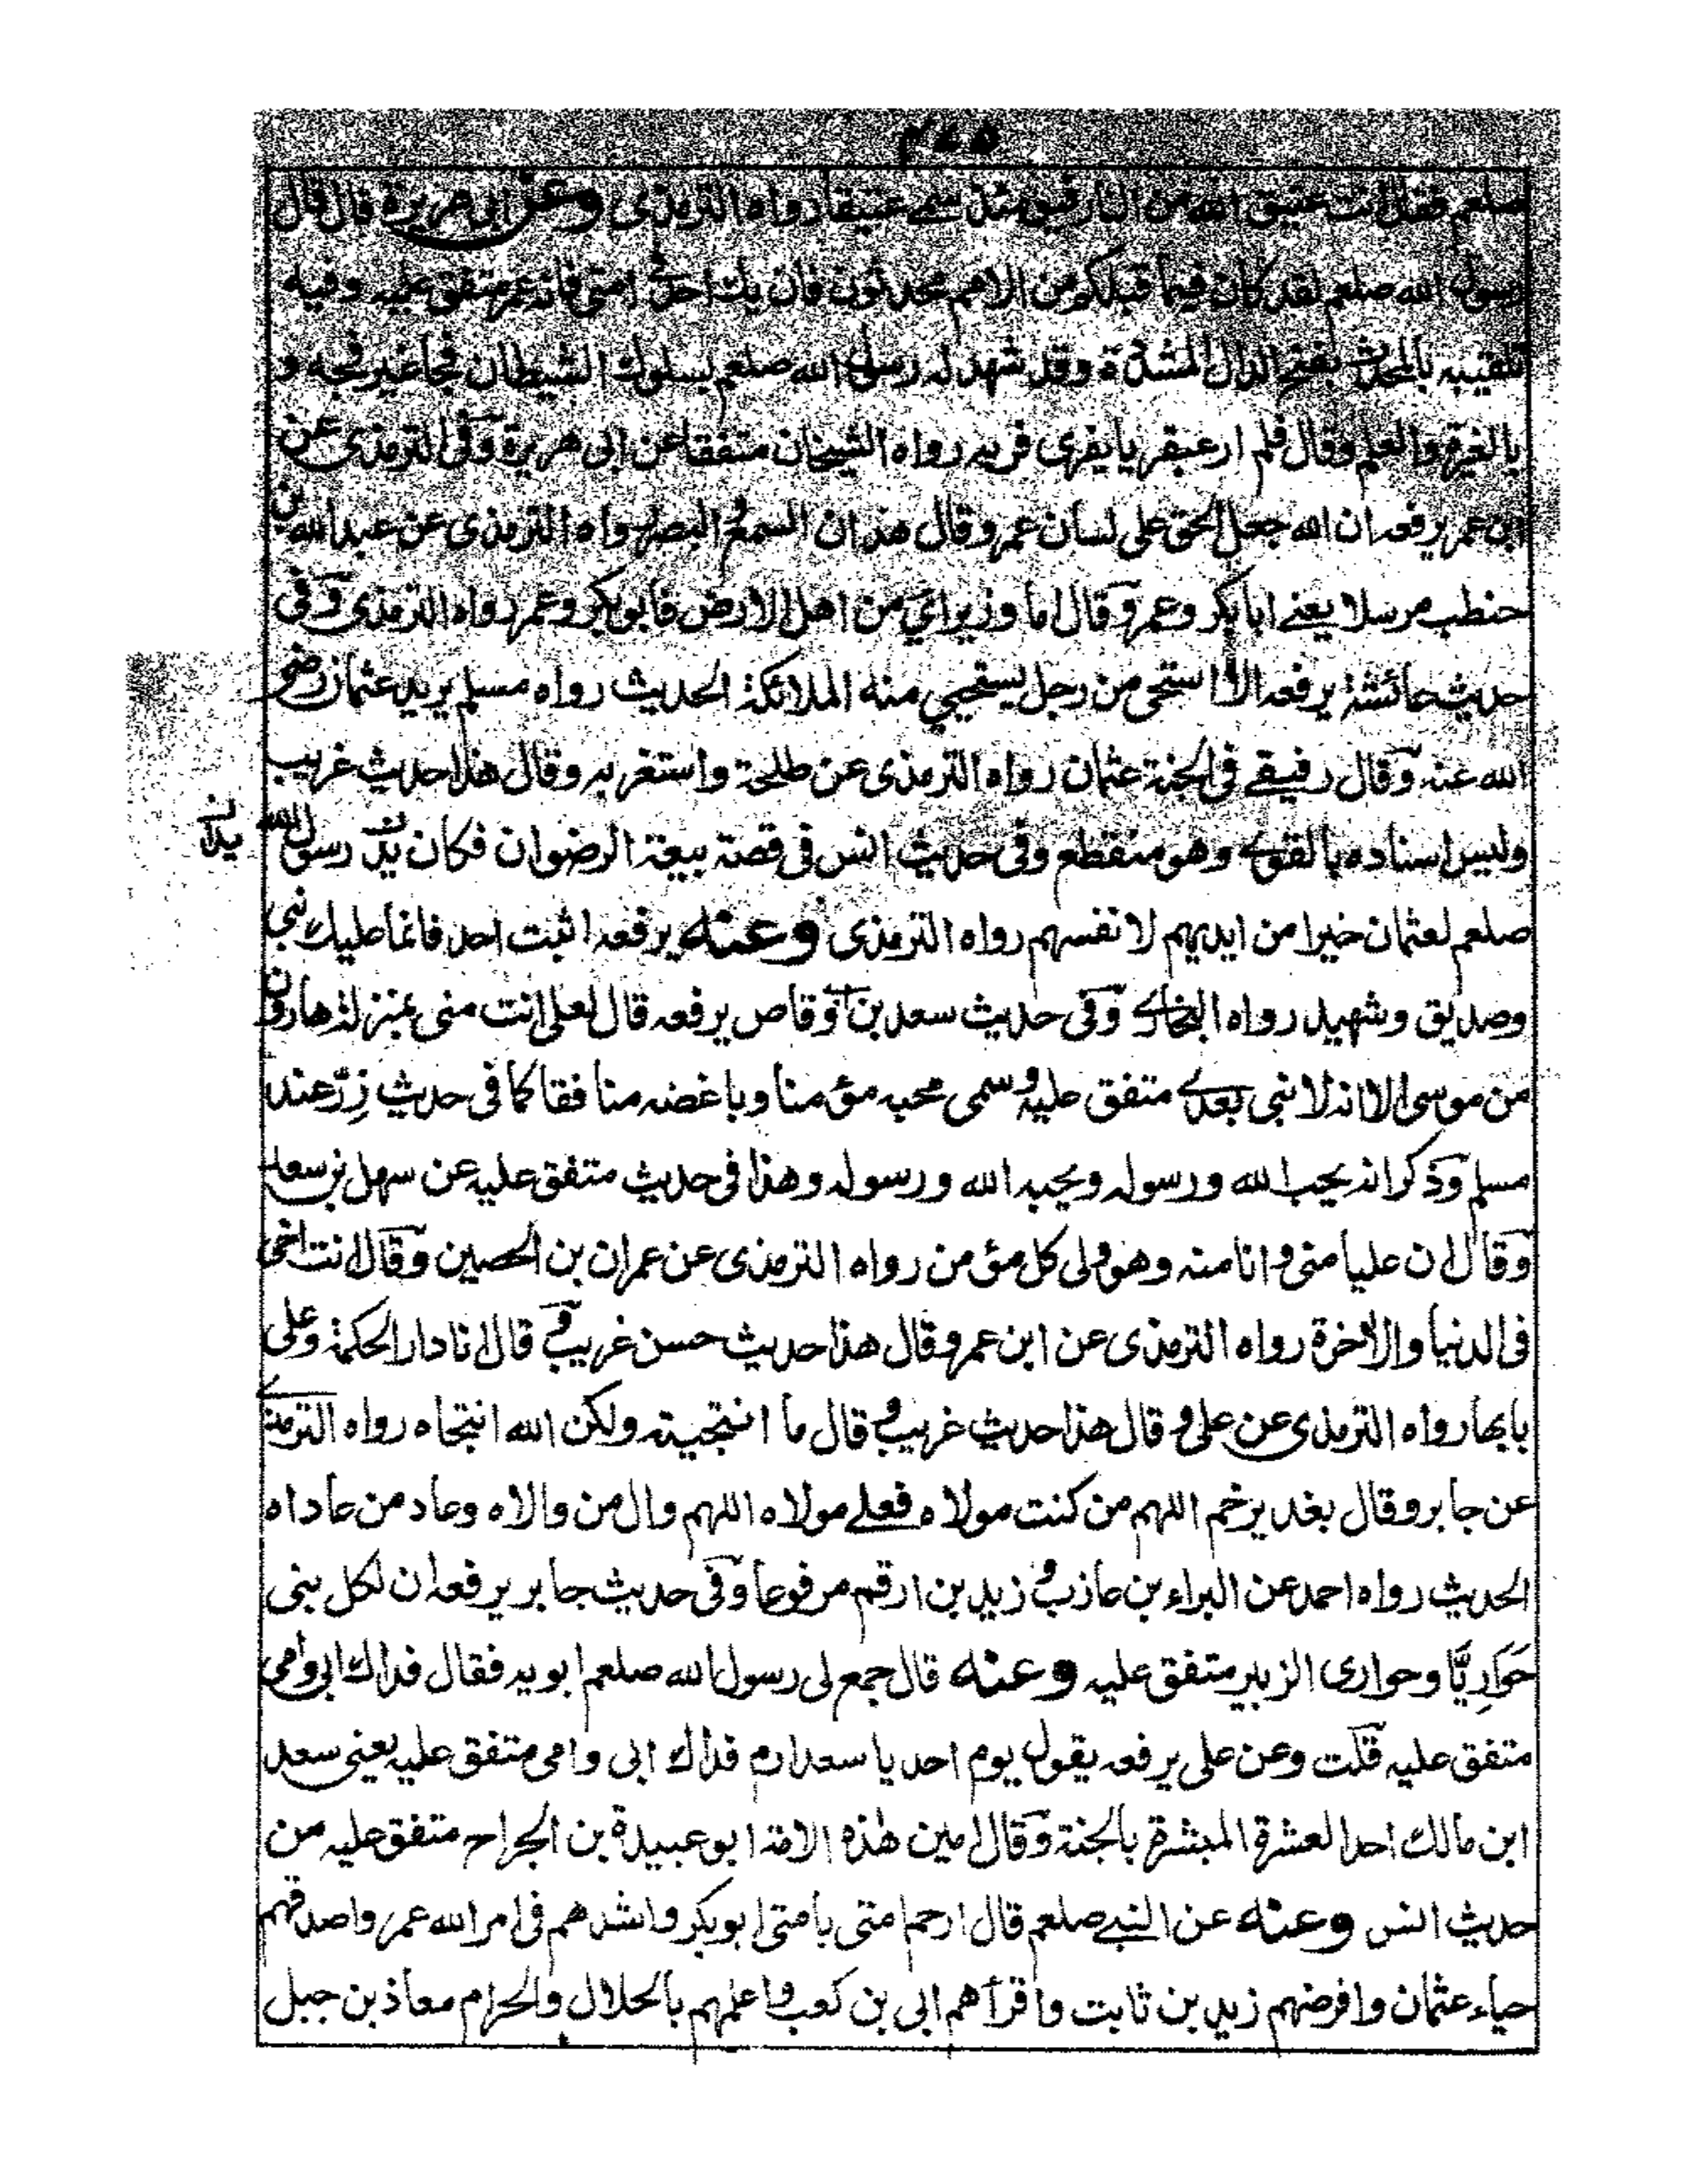 صلعم فقال انت عتيق الله من النار فيومئذ سمي عتيقا رواه الترمذى وعن ابى هريرة قال قال
رسول الله صلعم لقد كان فيما قبلكم من الامم محدثون فان يك احد فى امتى فانه عمر متفق عليه وفيه
تلقيبه بالمحدث بفتح الدال المشددة وقد شهد له رسول الله صلعم بسلوك الشيطان فجا غير فجه و
بالغيرة والعلم وقال فلم ار عبقريا يفرى فريه رواه الشيخان متفقا عن ابى هريرة وفى الترمذى عن
ابن عمر يرفعه ان الله جعل الحق على لسان عمر وقال هذان السمع والبصر رواه الترمذى عن عبدالله بن
حنطب مرسلا يعنے ابابكر وعمر وقال اما وزيراي من اهل الارض فابوبكر وعمر رواه الترمذى وفى
حديث عائشة يرفعه الا استحى من رجل يستحيي منه الملائكة الحديث رواه مسلم يريد عثمان رضى
الله عنه وقال رفيقے فى الجنة عثمان رواه الترمذى عن طلحة واستغربه وقال هذا حديث غريب
وليس اسناده بالقوے وهو منقطع وفى حديث انس فى قصة بيعة الرضوان فكان يد رسول الله
صلعم لعثمان خيرا من ايديهم لانفسهم رواه الترمذى وعنه يرفعه اثبت احد فانما عليك نبى
وصديق وشهيد رواه البخارے وفى حديث سعد بن وقاص يرفعه قال لعلى انت منى بمنزلة هارون
من موسى الا انه لا نبى بعدے متفق عليه وسمى محبه مؤمنا وباغضه منافقا كما فى حديث زِرّ عند
مسلم وذكر انه يحب الله ورسوله ويحبه الله ورسوله وهذا فى حديث متفق عليه عن سهل بن سعد
وقال ان عليا منى وانا منه وهو ولى كل مؤمن رواه الترمذى عن عمران بن الحصين وقال انت اخى
فى الدنيا والاخرة رواه الترمذى عن ابن عمر وقال هذا حديث حسن غريب و قال انا دار الحكمة وعلى
بابها رواه الترمذى عن على و قال هذا حديث غريب و قال ما انتجيته ولكن الله انتجاه رواه الترمذے
عن جابر وقال بغدير خم اللهم من كنت مولاه فعلے مولاه اللهم وال من والاه وعاد من عاداه
الحديث رواه احمد عن البراء بن عازب و زيد بن ارقم مرفوعا وفى حديث جابر يرفعه ان لكل بنى
حَوَارِيًّا وحوارى الزبير متفق عليه وعنه قال جمع لى رسول الله صلعم ابويه فقال فداك ابى وامى
متفق عليه قلت وعن على يرفعه يقول يوم احد يا سعد ارم فداك ابى وامى متفق عليه يعنى سعد
ابن مالك احد العشرة المبشرة بالجنة وقال امين هذه الامة ابو عبيدة بن الجراح متفق عليه من
حديث انس وعنه عن النبے صلعم قال ارحم امتى بامتى ابوبكر واشدهم فى امر الله عمر واصدقهم
حياء عثمان وافرضهم زيد بن ثابت واقرأهم ابى بن كعب واعلمهم بالحلال والحرام معاذ بن جبل